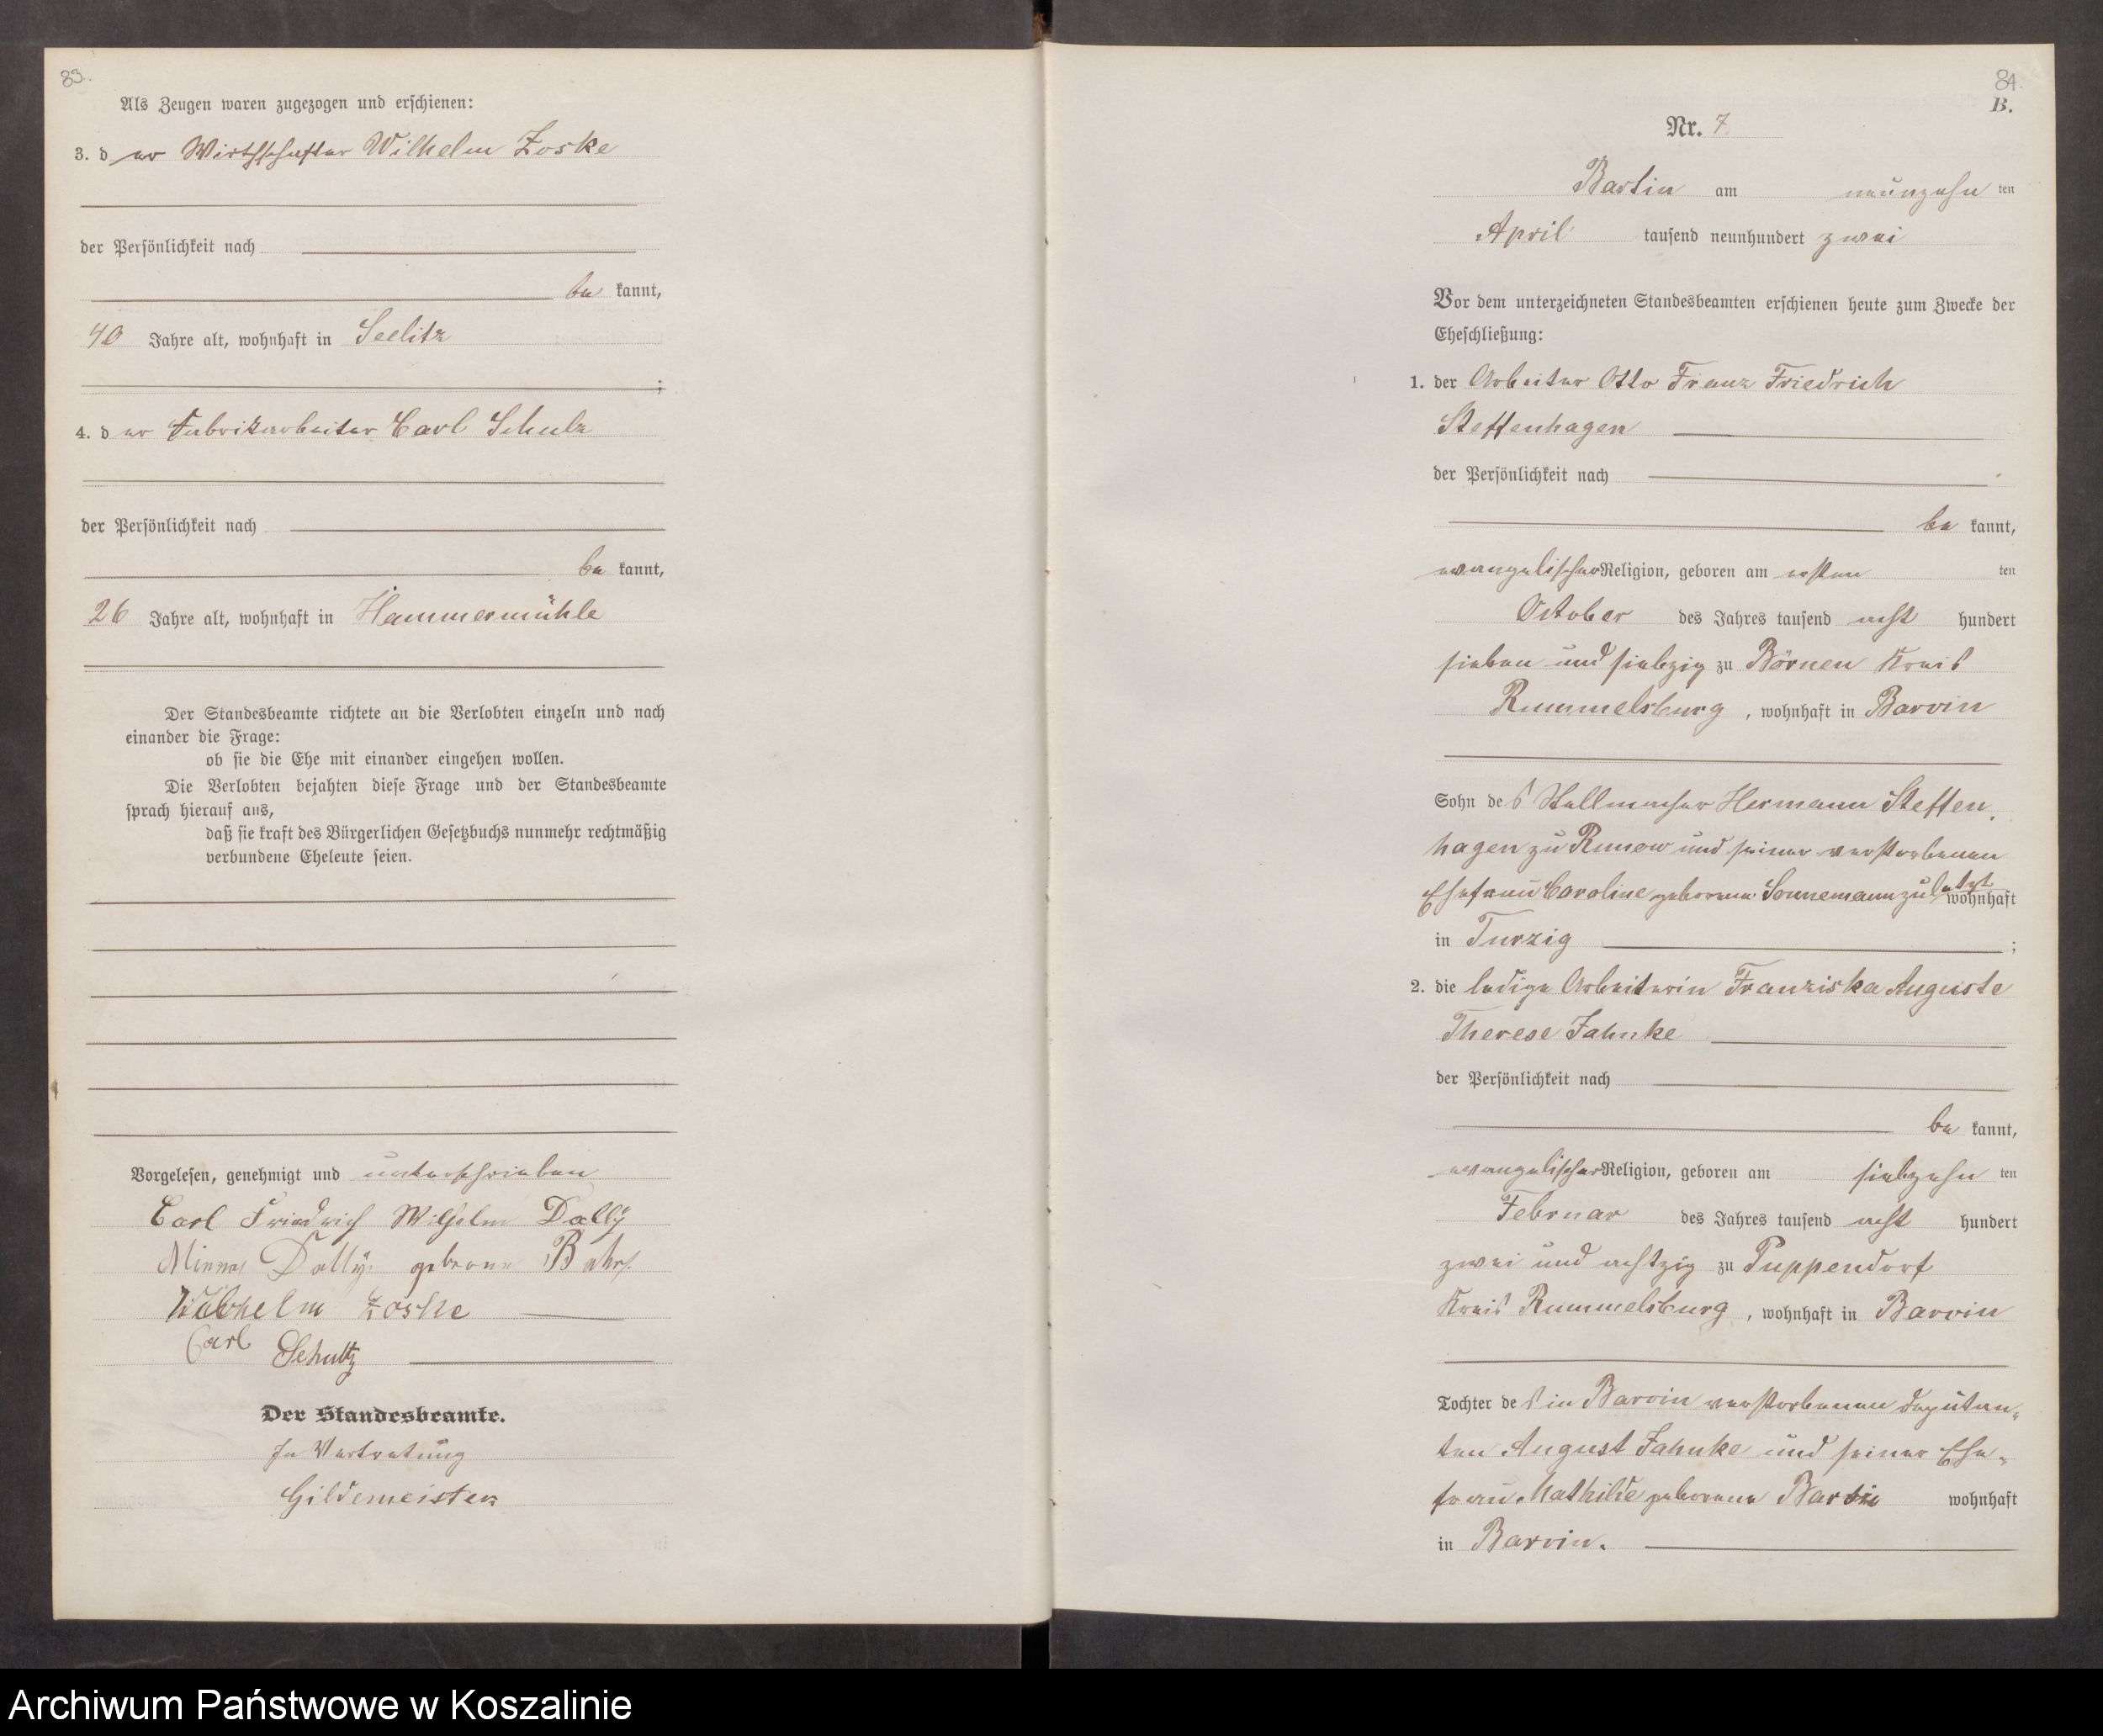 83.
Als Zeugen waren zugezogen und erschienen:
3. der Wirthschafter Wilhelm Zoske
der Persönlichkeit nach
be kannt,
40 Jahre alt, wohnhaft in Seelitz
;
4. der Fabrikarbeiter Carl Schulz
der Persönlichkeit nach
be kannt,
26 Jahre alt, wohnhaft in Hammermühle
Der Standesbeamte richtete an die Verlobten einzeln und nach
einander die Frage:
ob sie die Ehe mit einander eingehen wollen.
Die Verlobten bejahten diese Frage und der Standesbeamte
sprach hierauf aus,
daß sie kraft des Bürgerlichen Gesetzbuchs nunmehr rechtmäßig
verbundene Eheleute seien.
Vorgelesen, genehmigt und unterschrieben
Carl Friedrich Wilhelm Dally
Minna Dally geborne
Wilhelm Zoske
Carl Schultz
Der Standesbeamte.
In Vertretung
Gildemeister
84.
B.
Nr. 7
Bartin am neunzehn ten
April tausend neunhundert zwei
Vor dem unterzeichneten Standesbeamten erschienen heute zum Zwecke der
Eheschließung:
1. der Arbeiter Otto Franz Friedrich
Steffenhagen
der Persönlichkeit nach
be kannt,
evangelischer Religion, geboren am ersten ten
October des Jahres tausend acht hundert
sieben und siebzig zu Börnen Kreis
Rummelsburg, wohnhaft in Barvin
Sohn des Stellmacher Hermann Steffen-
hagen zu Runow und seiner verstorbenen
Ehefrau Caroline geborene Sonnemann zuletzt wohnhaft
in Turzig ;
2. die ledige Arbeiterin Franziska Auguste
Therese Jahnke
der Persönlichkeit nach
be kannt,
evangelischer Religion, geboren am siebzehn ten
Februar des Jahres tausend acht hundert
zwei und achtzig zu Puppendorf
Kreis Rummelsburg, wohnhaft in Barvin
Tochter des in Barvin verstorbenen Deputan-
ten August Jahnke und seiner Ehe-
frau Mathilde geborene wohnhaft
in Barvin.
Archiwum Państwowe w Koszalinie